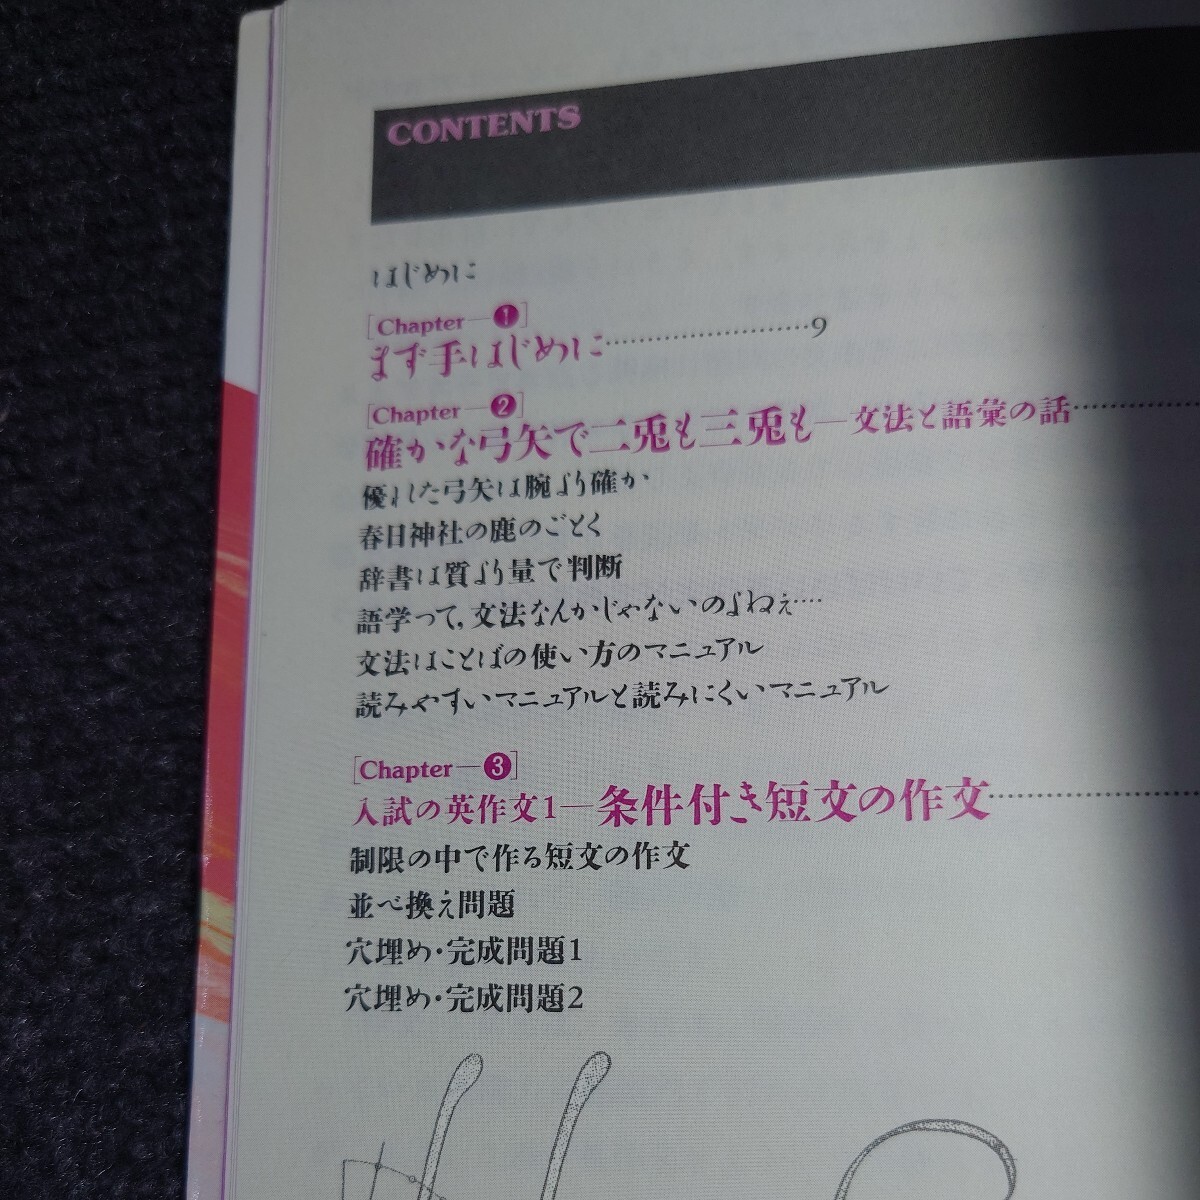 CONTENTS
はじめに
[Chapter—❶]
まず手はじめに……………………9
[Chapter—❷]
確かな弓矢で二兎も三兎も—文法と語彙の話…………
優れた弓矢は腕より確か
春日神社の鹿のごとく
辞書は質より量で判断
語学って,文法なんかじゃないのよねぇ…‥
文法はことばの使い方のマニュアル
読みやすいマニュアルと読みにくいマニュアル
[Chapter—❸]
入試の英作文1—条件付き短文の作文…………………
制限の中で作る短文の作文
並べ換え問題
穴埋め・完成問題1
穴埋め・完成問題2